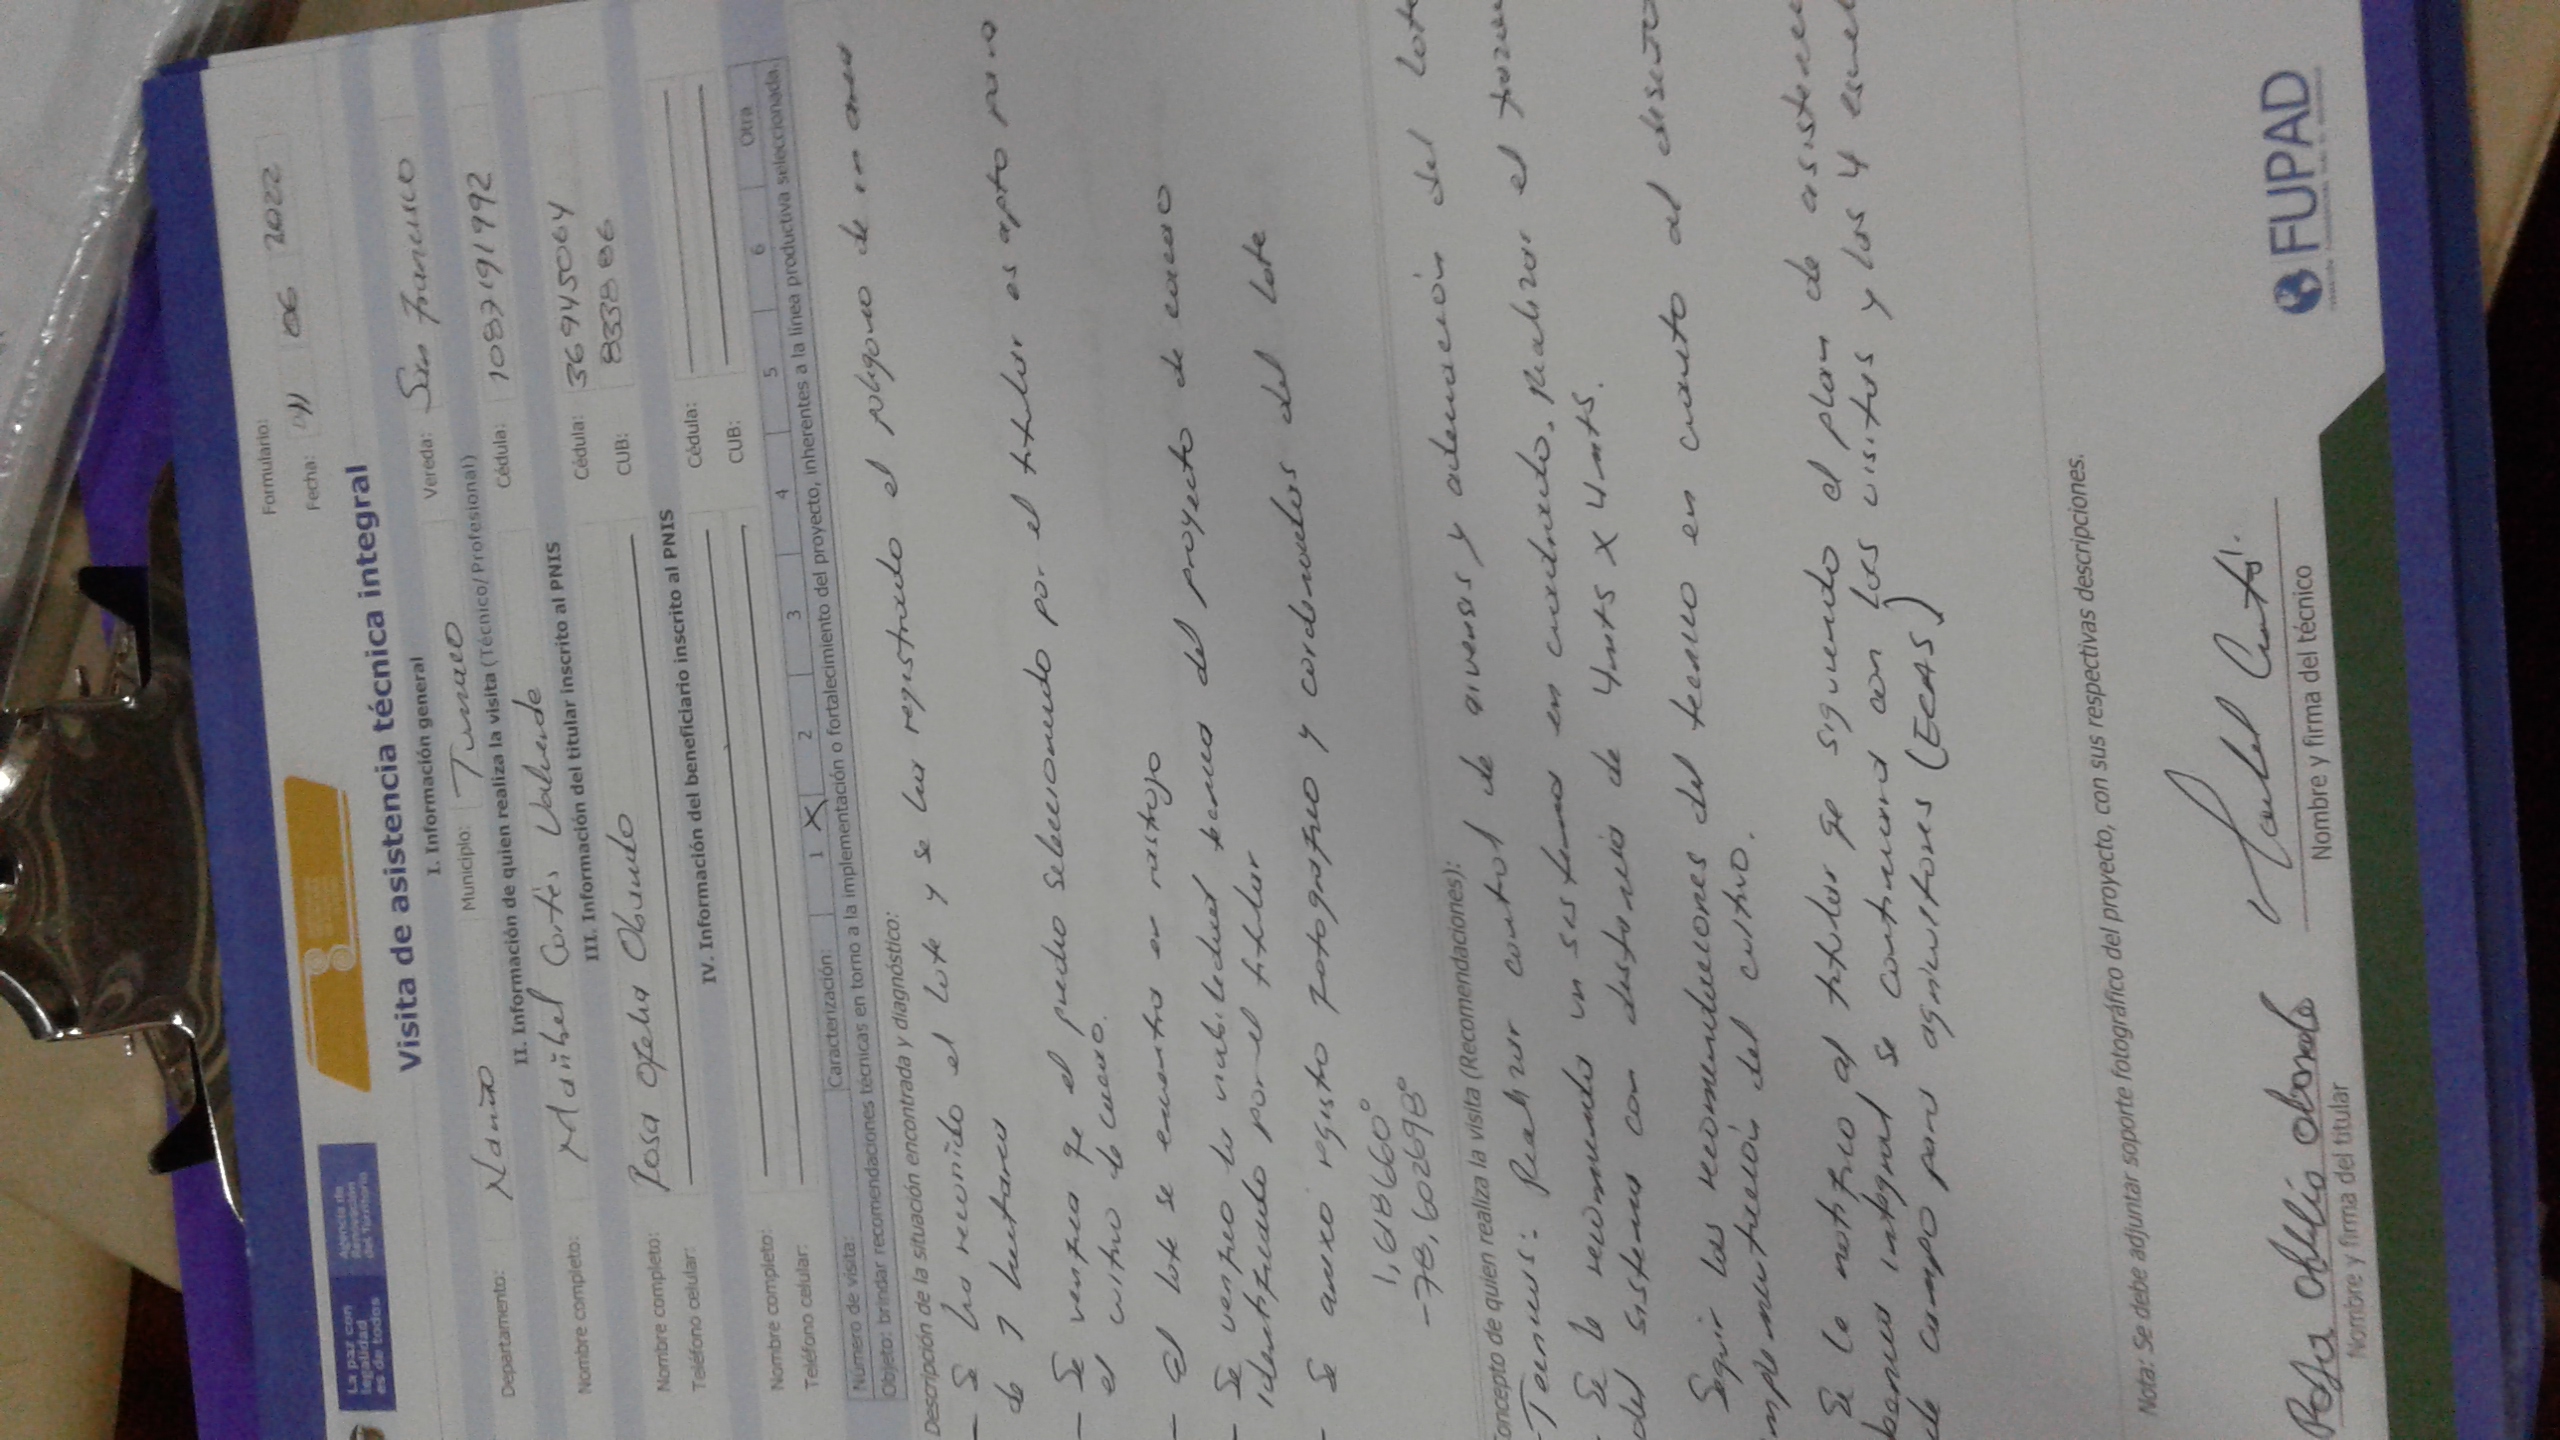 La paz con legalidad es de todos
Agencia de Renovación del Territorio
Formulario:
Fecha: 11 06 2022
Visita de asistencia técnica integral
I. Información general
Departamento: Nariño Municipio: Tumaco Vereda: San Francisco
II. Información de quien realiza la visita (Técnico/Profesional)
Nombre completo: Maribel Cortés Valverde Cédula: 1087191992
III. Información del titular inscrito al PNIS
Nombre completo: Rosa Ofelia Obando Cédula: 36945064
Teléfono celular: CUB: 833886
IV. Información del beneficiario inscrito al PNIS
Nombre completo: Cédula:
Teléfono celular: CUB:
Número de visita: Caracterización: 1 X 2 3 4 5 6 Otra
Objeto: brindar recomendaciones técnicas en torno a la implementación o fortalecimiento del proyecto, inherentes a la línea productiva seleccionada.
Descripción de la situación encontrada y diagnóstico:
- Se ha recorrido el lote y se ha registrado el poligono de un area
de 1 hectarea
- Se verifica qe el predio seleccionado por el titular es apto para
el cultivo de cacao.
- El lote se encuentra en rastrojo
- Se verifico la viabilidad tecnica del proyecto de cacao
identificado por el titular
- Se anexo registo fotografico y cordenadas del lote
1,648660°
-78,602698°
Concepto de quien realiza la visita (Recomendaciones):
- Tecnicas: Realizar control de arvenses y adecuación del lote
- Se le recomienda un sistema en cuadrado. Realizar el trazado
del sistema con distancia de 4mts x 4mts.
Seguir las recomendaciones del tecnico en cuanto al desarro
implementación del cultivo.
Se le notifico al titular qe siguiendo el plan de asistenci
tecnica integral se continuará con las visitas y las 4 escuel
de campo para agricultores (ECAS)
Nota: Se debe adjuntar soporte fotográfico del proyecto, con sus respectivas descripciones.
Rosa Ofelia Obando
Nombre y firma del titular
Maribel Cortés.
Nombre y firma del técnico
FUPAD